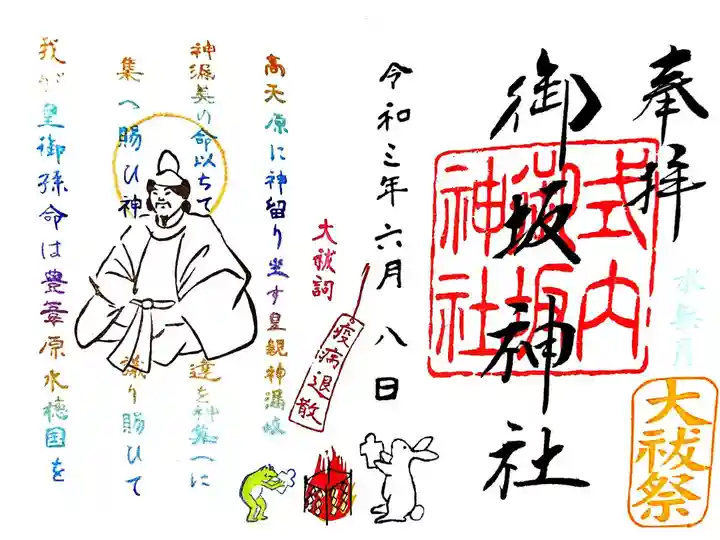 奉拝
水無月
大祓祭
式内
御坂
神社
御坂神社
令和三年六月八日
大祓詞
疫病退散
高天原に神留り坐す皇親神漏岐
神漏美の命以ちて
達を神集へに
集へ賜ひ神
議り賜ひて
我が皇御孫命は豊葦原水穂国を